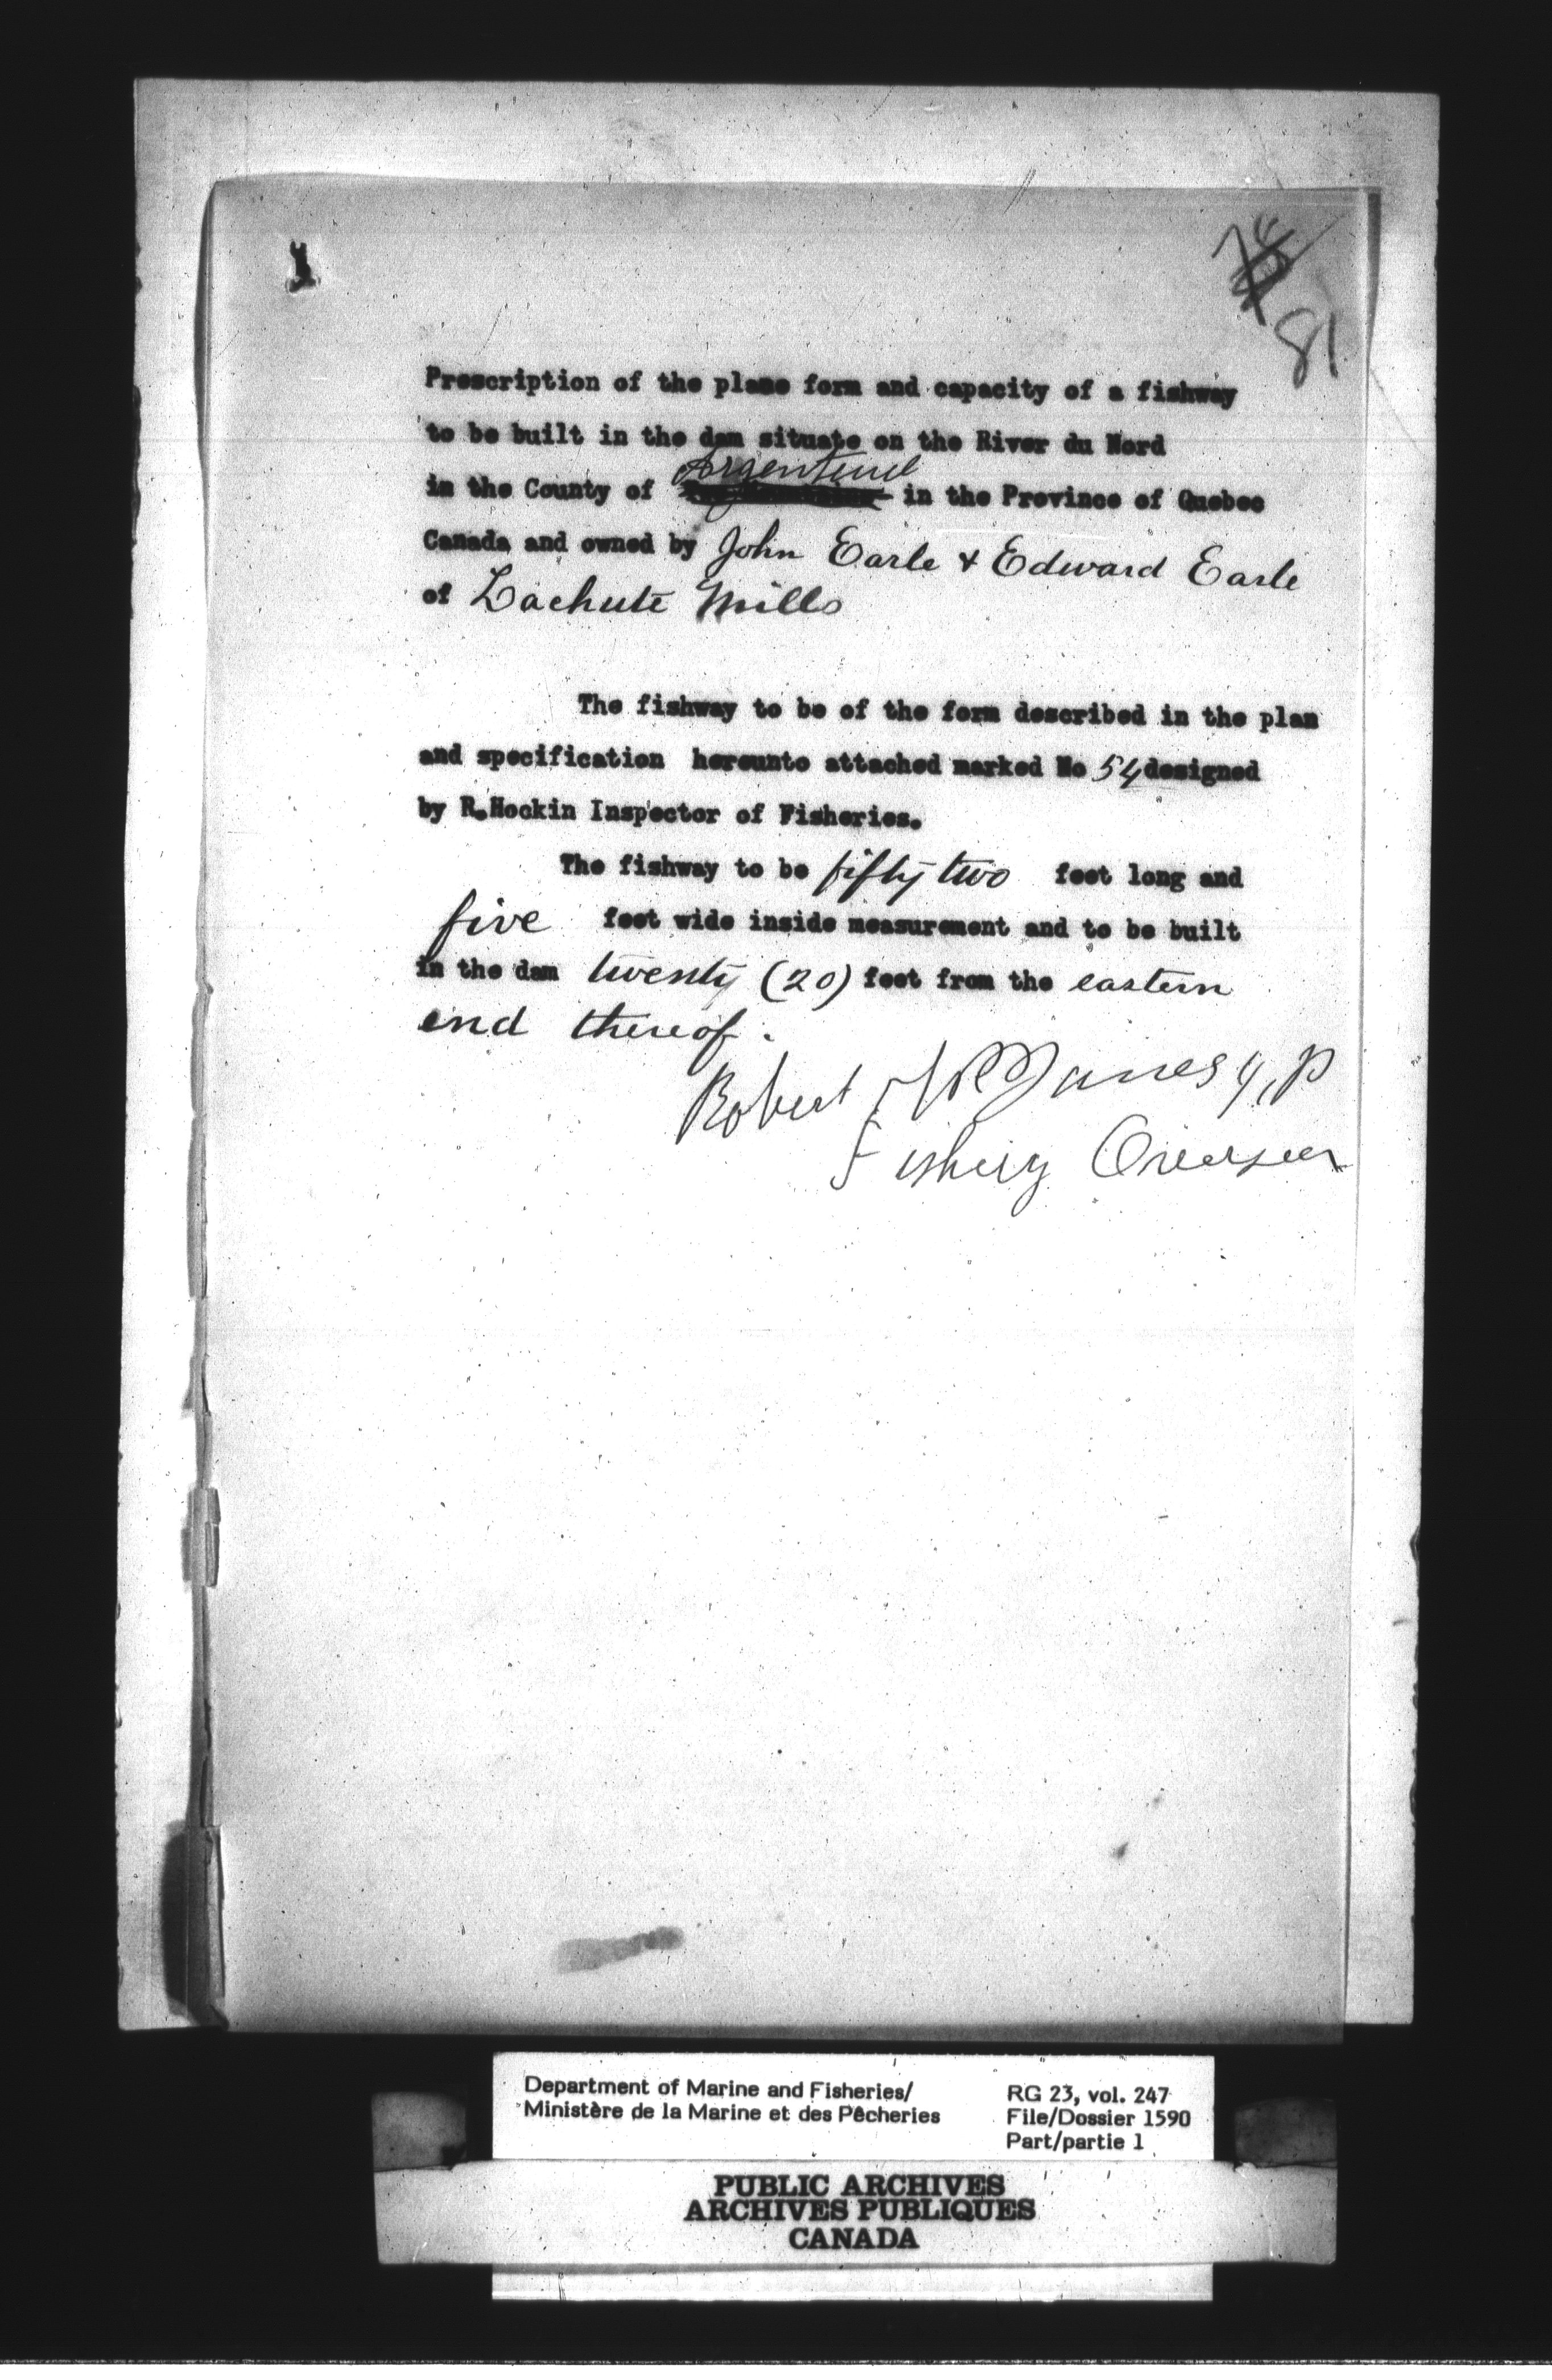 81
Prescription of the place form and capacity of a fishway
to be built in the dam situate on the River du Nord
Argenteuil
in the County of in the Province of Quebec
Canada and owned by John Earle & Edward Earle
of Lachute Mills
The fishway to be of the form described in the plan
and specification hereunto attached marked No 54 designed
by R.Hockin Inspector of Fisheries.
The fishway to be fifty two feet long and
five feet wide inside measurement and to be built
in the dam twenty (20) feet from the eastern
end thereof.
Robert
Fishery Overseer
Department of Marine and Fisheries/
Ministère de la Marine et des Pêcheries
RG 23, vol. 247
File/Dossier 1590
Part/partie 1
PUBLIC ARCHIVES
ARCHIVES PUBLIQUES
CANADA